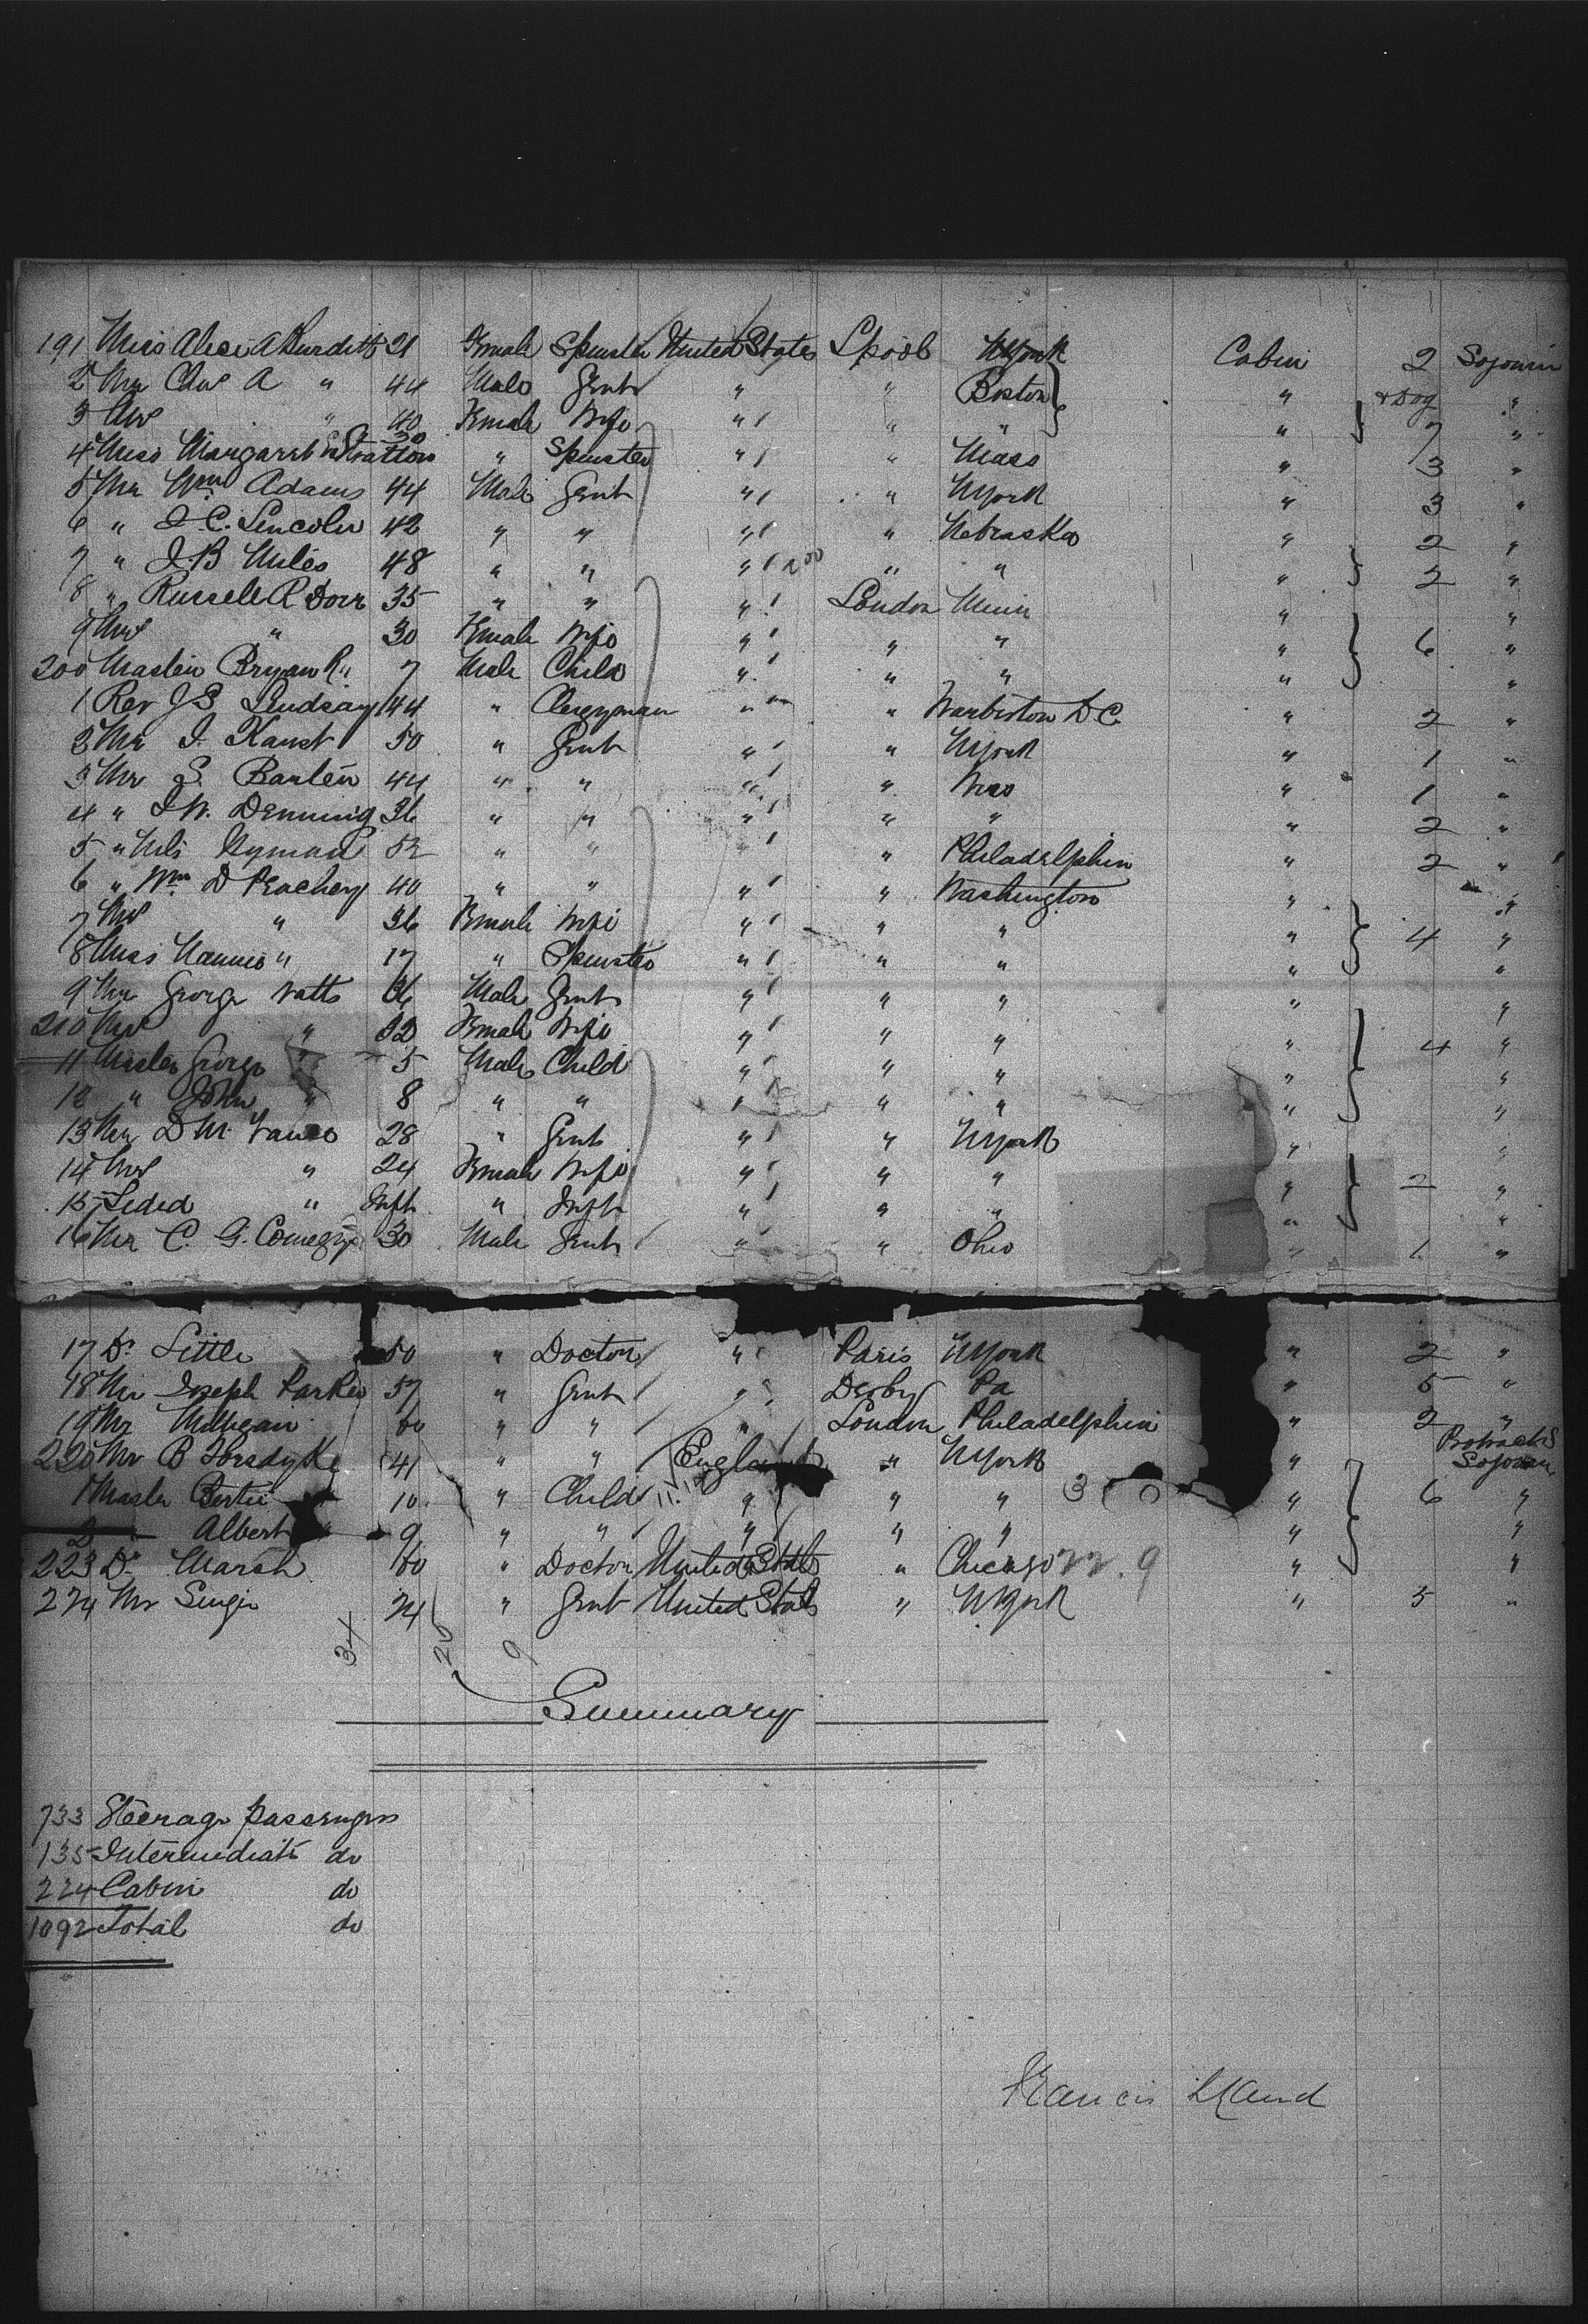 191 Miss Alice A Burditt 21 Female Spinster United States Lpool NYork Cabin 2 Sojourn
2 Mr Chas A " 44 Male Gent " " Boston " & Dog "
3 Mrs " 40 Female Wife " " " " 7 "
4 Miss Margaret Stratton 30 " Spinster " " Mass " 3 "
5 Mr Wm Adams 44 Male Gent " " NYork " 3 "
6 " J. C. Lincoln 42 " " " " Nebraska " 2 "
7 " J. B Miles 48 " " " " " " 2 "
8 " Russell R Dorr 35 " " " London Minn " "
9 Mrs " 30 Female Wife " " " " 6 "
200 Master Bryan R " 7 Male Child " " " " "
1 Rev J S Lindsay 44 " Clergyman " " D.C. " 2 "
2 Mr J. 50 " Gent " " NYork " 1 "
3 Mr S. 44 " " " " " 1 "
4 " J W. Denning 36 " " " " " " 2 "
5 " Nels Nyman 52 " " " " Philadelphia " 2 "
6 " Wm D Peachey 40 " " " " Washington " "
7 Mrs " 36 Female Wife " " " " 4 "
8 Miss Nannie " 17 " Spinster " " " " "
9 Mr George Watts 36 Male Gent " " " " "
210 Mrs " 32 Female Wife " " " " 4 "
11 Master George " 5 Male Child " " " " "
12 " John " 8 " " " " " " "
13 Mr D M. 28 " Gent " " NYork " "
14 Mrs " 24 Female Wife " " " " 2 "
15 " Inft " Inft " " " " "
16 Mr C. G. Comegys 30 Male Gent " " Ohio " 1 "
17 Dr Little 50 " Doctor " Paris NYork " 2 "
18 Mr Joseph Parker 57 " Gent " Derby Pa " 5 "
19 Mr Milligan 60 " " " London Philadelphia " 2 "
220 Mr B Horsdyke 41 " " England " NYork " Protracted Sojourn
1 Master Bertie 10 " Child " " " " 6 "
2 " Albert " 9 " " " " " " "
223 Dr Marsh 60 " Doctor United States " Chicago " "
224 Mr Singer 24 " Gent United States " NYork " 3 "
34 20 9
Summary
733 Steerage passengers
135 Intermediate do
224 Cabin do
1092 Total do
Francis Land